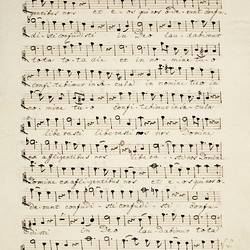 di sti confudisti in Deo lau dabimur
tota tota die et in no mine tu o
confi tebimur in sæ cula in nomine tuo
no mine tu o confi tebimur in sæ cula
liberasti liberasti nos nos Domine
ex affligentibus nos libera sti nos Domine
Domine ex affligentibus nos e os qui o de
derunt confudi sti confudi sti confu
disti in Deo lau dabimur tota